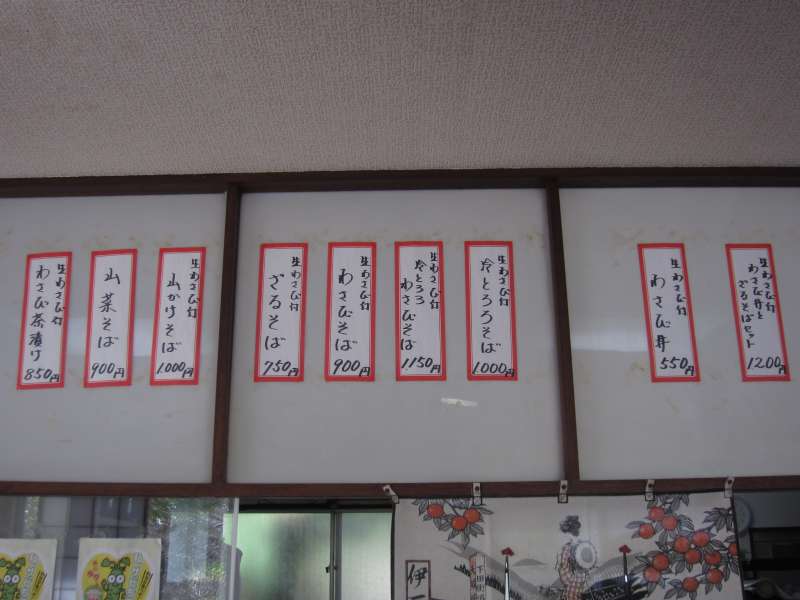 生わさび付
わさび丼と
ざるそばセット
1200円
生わさび付
わさび丼
550円
生わさび付
冷とろろそば
1000円
生わさび付
冷とろろ
わさびそば
1150円
生わさび付
わさびそば
900円
生わさび付
ざるそば
750円
生わさび付
山かけそば
1000円
山菜そば
900円
生わさび付
わさび茶漬け
850円
伊